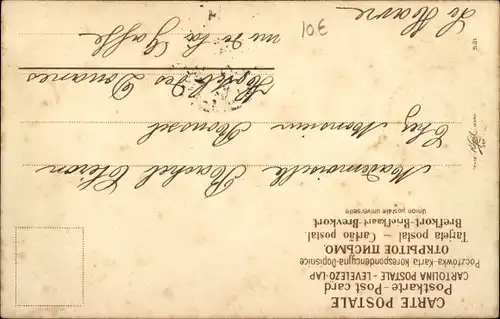 CARTE POSTALE
Postkarte-Post card
CARTOLINA POSTALE - LEVELEZO-LAP
Pocztówka-Karta korespondencyjna-Dopisnice
ОТКРЫТОЕ ПИСЬМО.
Tarjeta postal - Cartão postal.
Brefkort-Briefkaart-Brevkort
Union postale universelle
Mademoiselle Rachel
Chez Monsieur Roussel
Hôtel des Douanes
rue de la Gaffe
Le Havre
10€
521